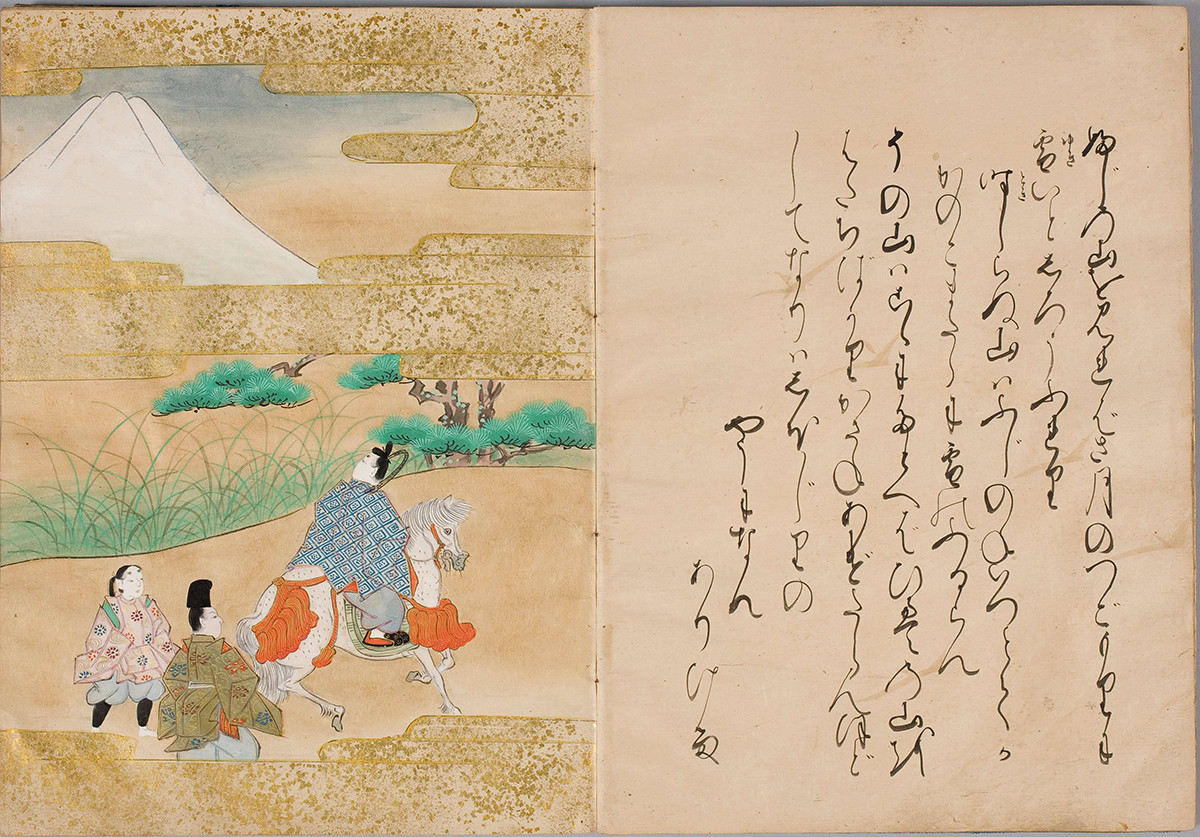 ふじの山を見ればさ月のつごもりに
雪いとしろうふれり
時しらぬ山はふじのねいつとてか
かのこまだらに雪のふるらん
その山はこゝにたとへばひえの山を
はたちばかりかさねあげたらんほど
してなりはしほじりの
やうになん
ありける